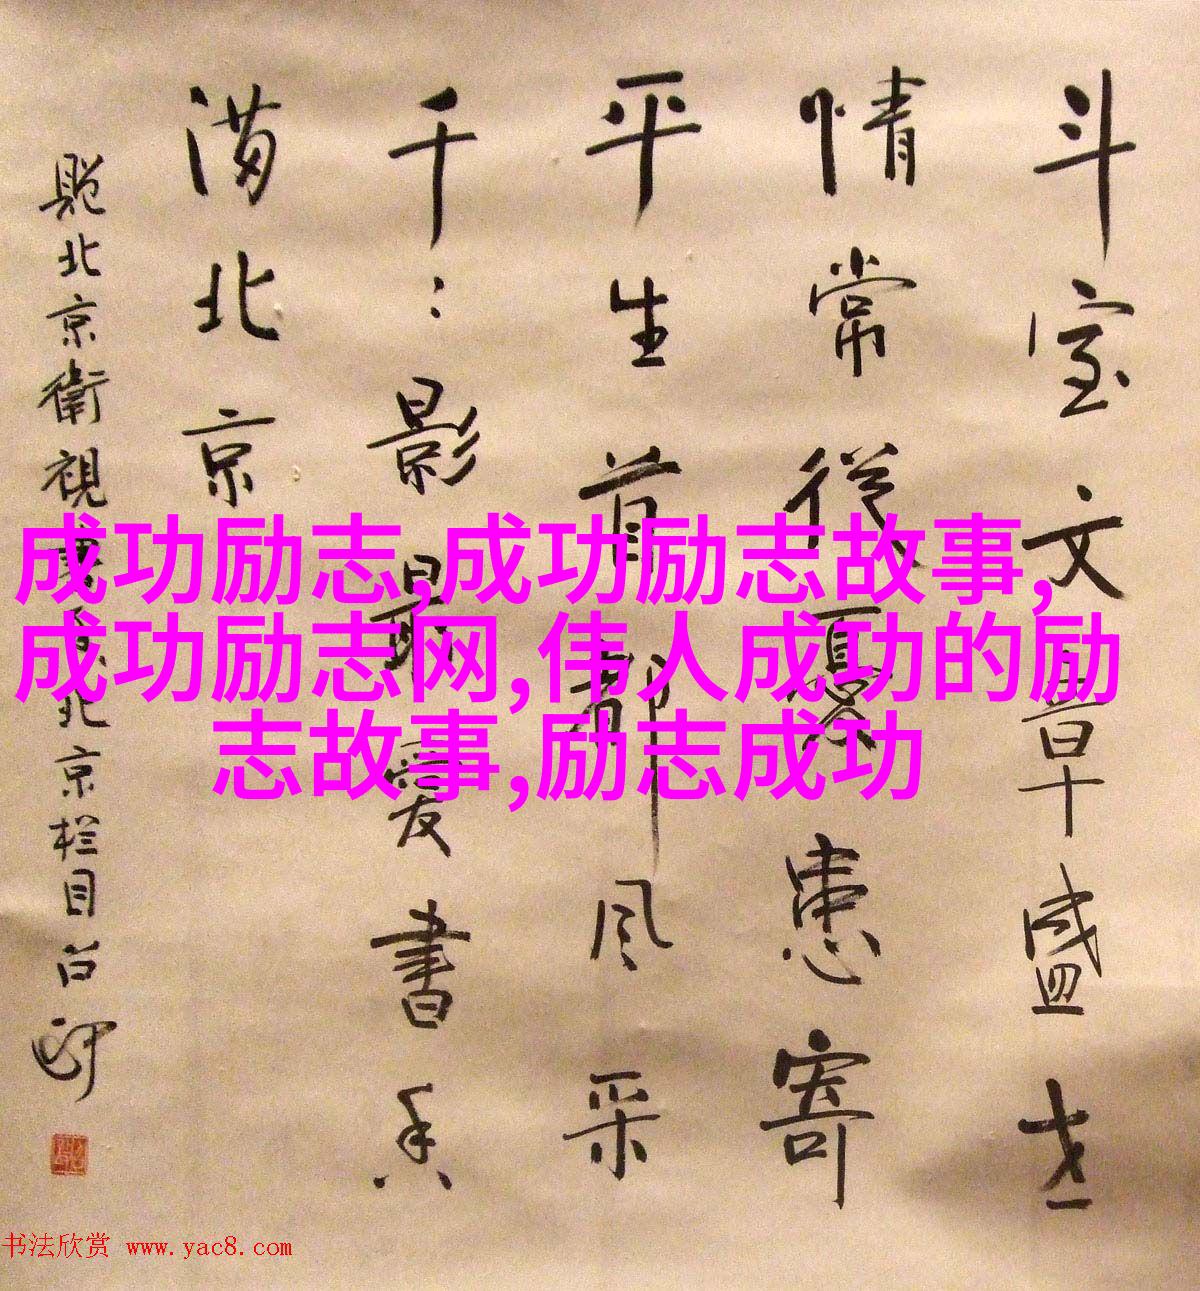 斗室文章盛世
情常從憂患寄
平生首都風采
千：影最愛書香
满北京
題北京衛視書香北京栏目
成功励志,成功励志故事,
成功励志网,伟人成功的励
志故事,励志成功
书法欣赏 www.yac8.com